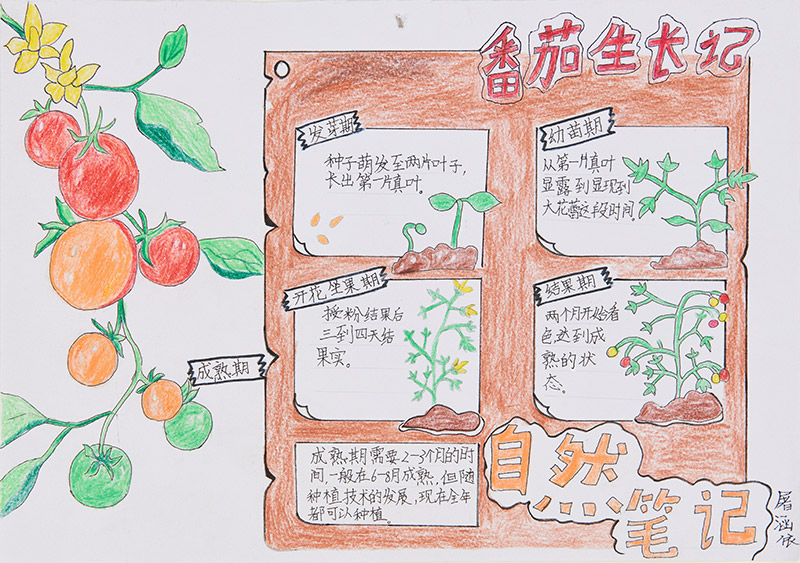 番茄生长记
发芽期
种子萌发至两片叶子,
长出第一片真叶。
幼苗期
从第一片真叶
显露到显现到
大花蕾这段时间。
开花坐果期
授粉结果后
三到四天结
果实。
结果期
两个月开始着
色,达到成
熟的状
态。
成熟期
成熟期需要2-3个月的时
间,一般在6-8月成熟,但随
种植技术的发展,现在全年
都可以种植。
自然
笔记
屠涵依